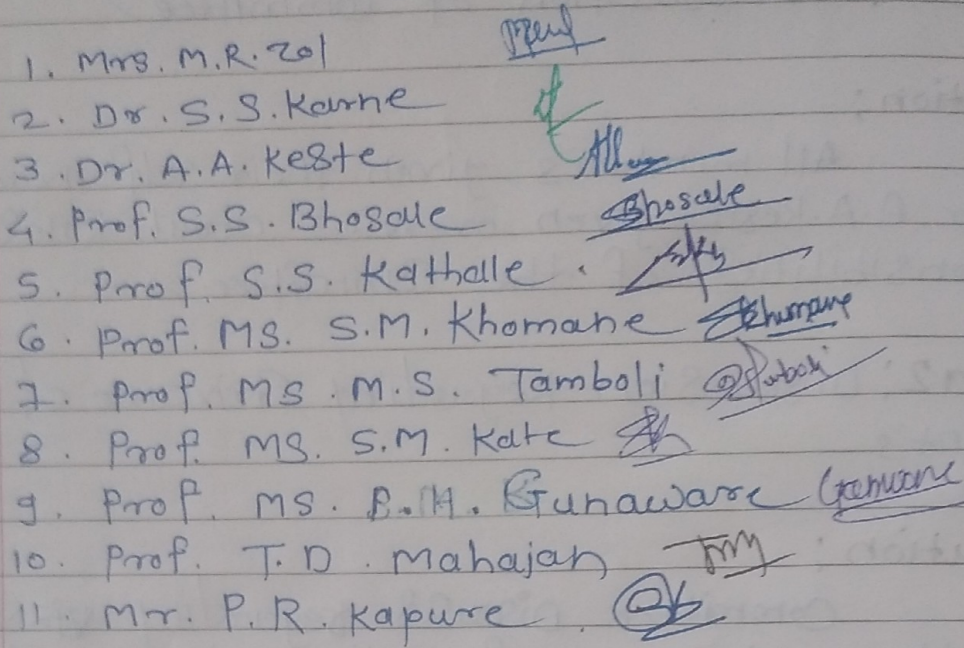 1. Mrs. M.R. Zol
2. Dr. S.S. Karne
3. Dr. A.A. Keste
4. Prof. S.S. Bhosale Bhosale
5. Prof. S.S. Kathalle.
6. Prof. MS. S.M. Khomane Khomane
7. Prof. MS. M.S. Tamboli
8. Prof. MS. S.M. Kate
9. Prof. MS. B.H. Gunaware
10. Prof. T.D. Mahajan
11. Mr. P.R. Kapure